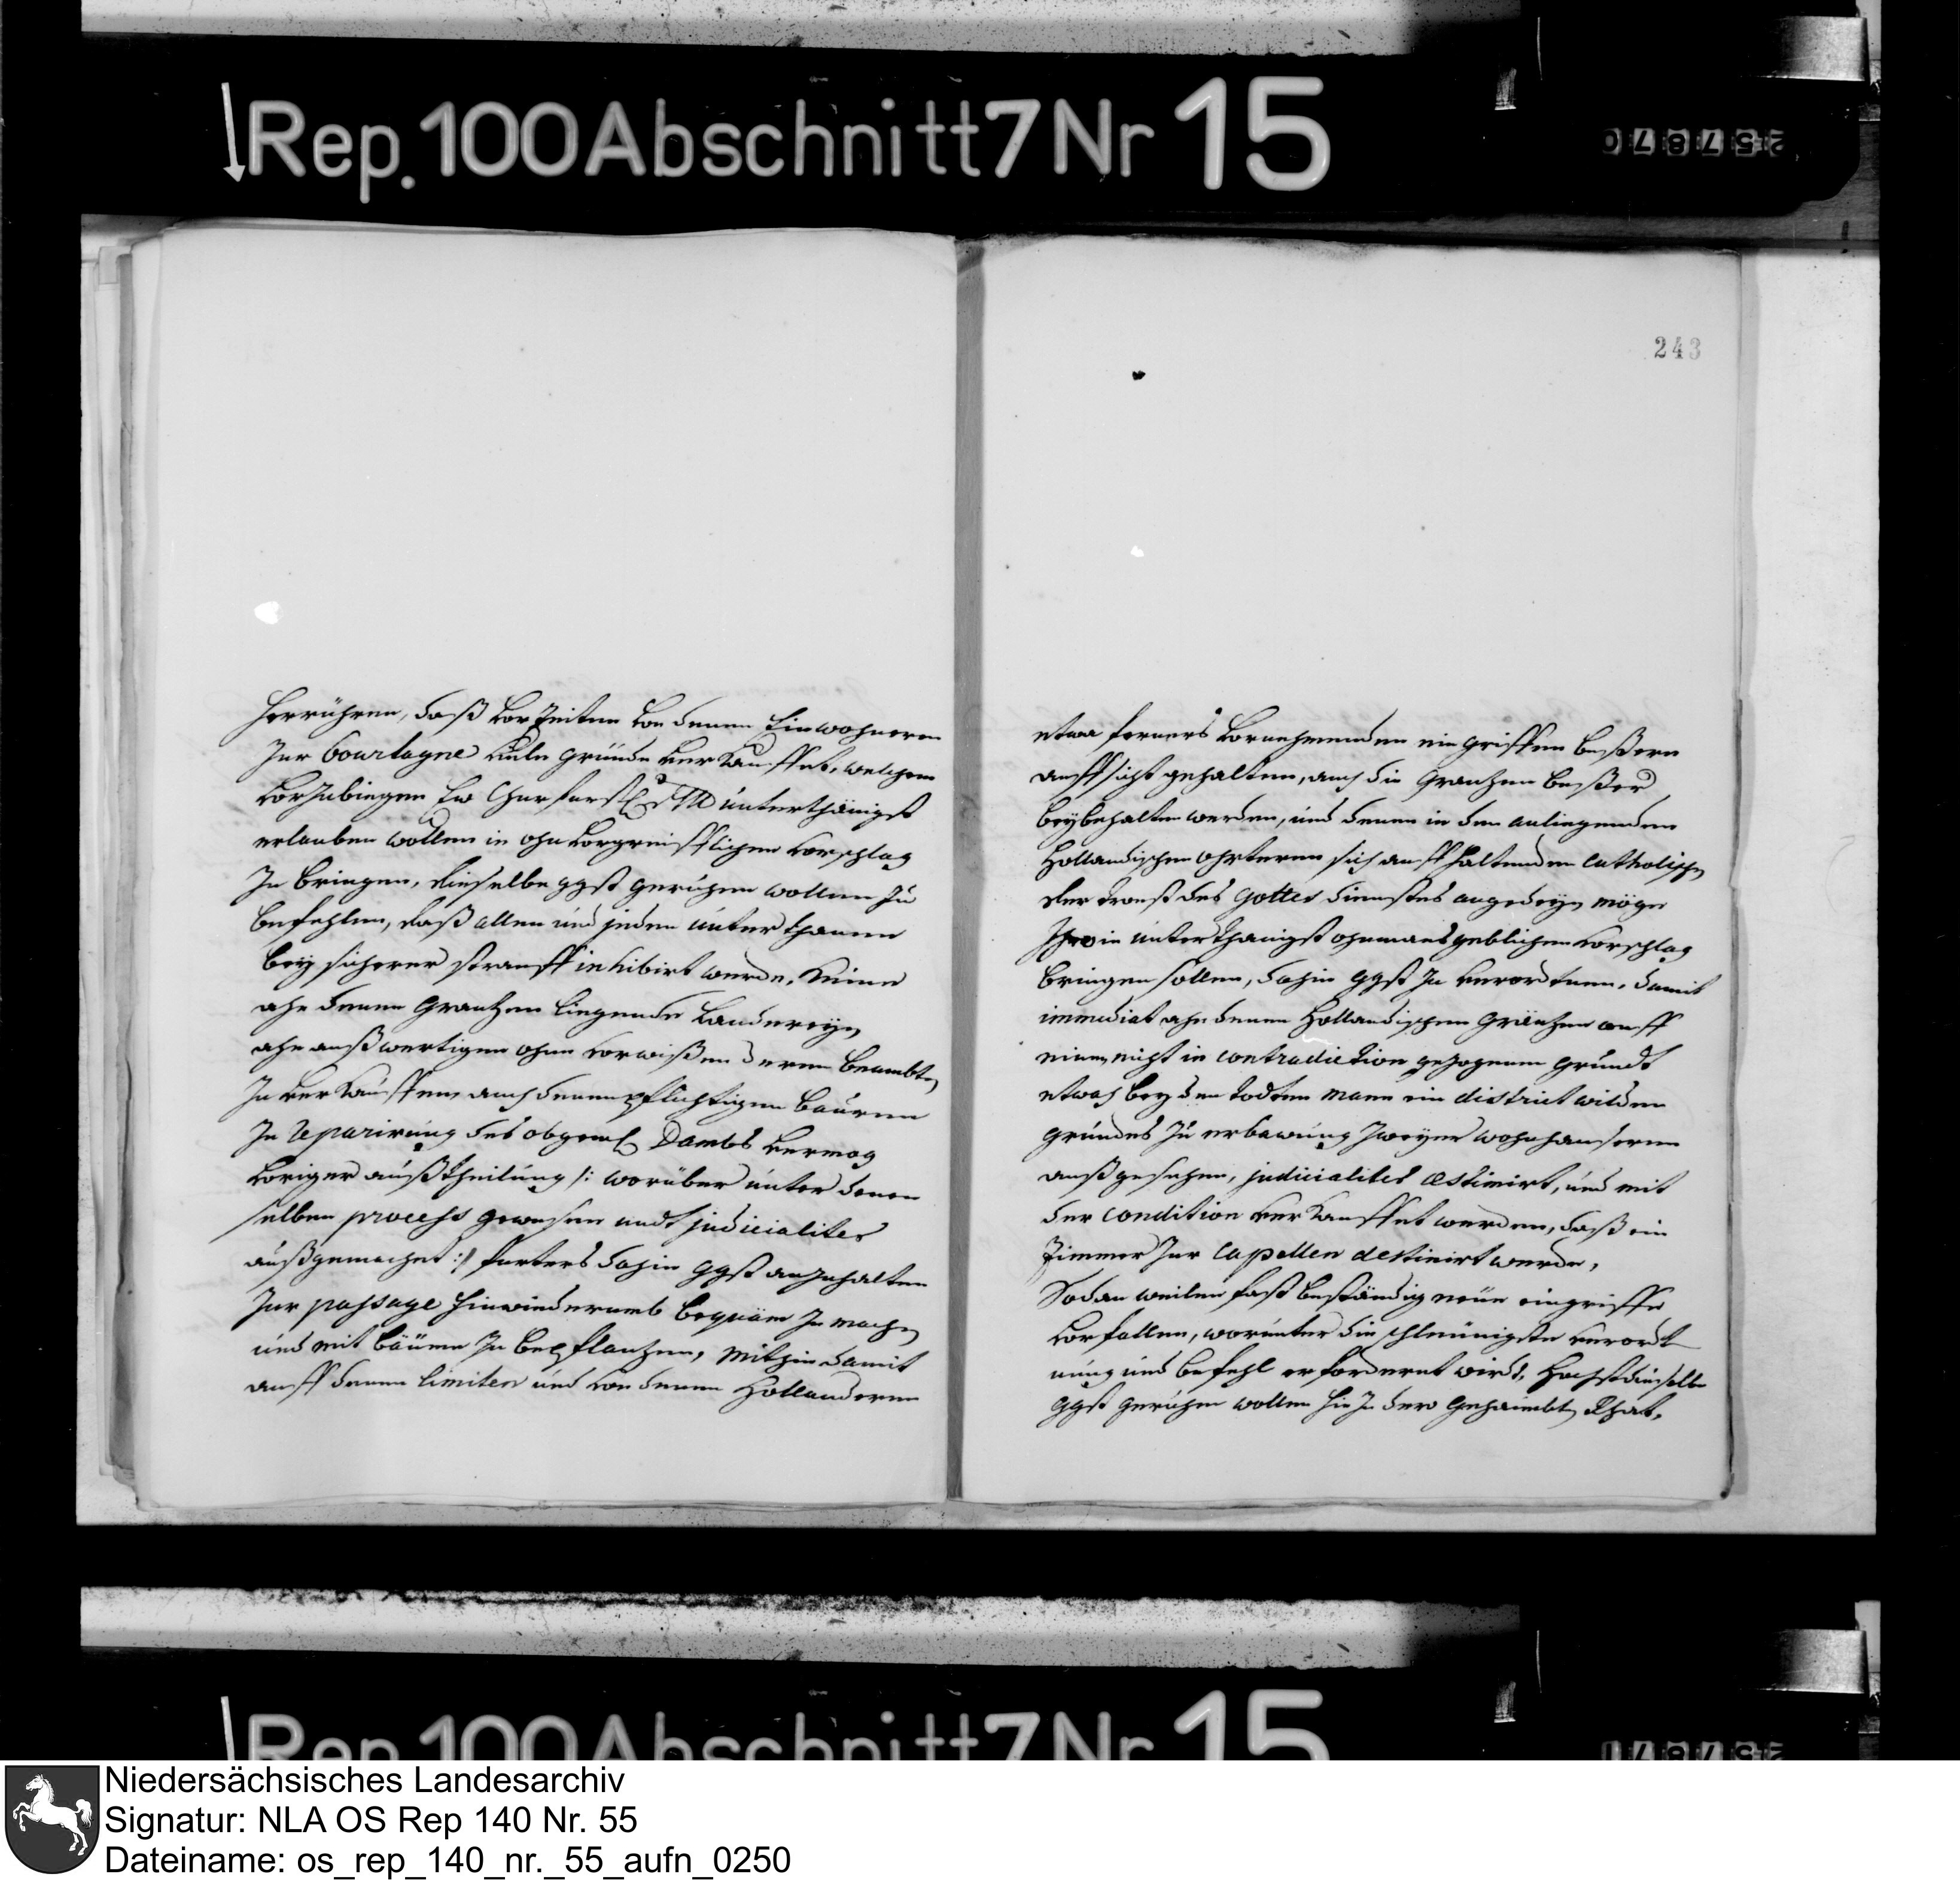 Rep. 100 Abschnitt 7 Nr 15
257870
herrühren, daß vor Zeiten von denen Einwohneren
Zur Bourtagne viele gründe verkauffet, welchem
vorzubiegen Ew Churfürstl. Dhlt unterthänigst
erlauben wollen in ohnvorgreifflichen vorschlag
Zu bringen, dieselbe ggst geruhen wollen zu
befehlen, daß allen und jeden unterthanen
bey sicherer strauff inhibirt werde, keine
ahn denen Grantzen liegende Landereyen
ahn außwertigen ohne vorwißen deren Beambten
Zu verkauffen, auch denen pflichtigen Bauren
Zu reparirung des obgeml Dambs vermog
voriger außtheilung /: worüber unter denen
selben process gewesen undt judicialiter
außgemachet :/ furters dahin ggst anzuhalten
Zur passage hinwiederumb bequäm zu machen
und mit bäumen zu bepflantzen, mithin damit
auff denen limiten und von denen Hollanderen
243
etwa ferners vornehmenden eingriffen beßere
auffsicht gehalten, auch die Grantzen beßer
beybehalten werden, und denen in den anliegenden
Hollandischen ohrteren sich auffhaltenden Catholischen
der trost des Gottes dienstes angedeyen möge
in unterthänigst ohnmasgeblichen vorschlag
bringen sollen, dahin ggst zu verordtnen, damit
immediat ahn denen Hollandischen Gräntzen auff
einen nicht in contradiction gezogenen grundt
etwas bey den todten mann ein district wilden
grundes zu erbawung zweyer wohnhauseren
außgesehen, judicialiter æstimirt, und mit
der condition verkauffet werden, daß ein
Zimmer zur Capellen destinirt werde,
Sodan weilen fast beständig neue eingriffe
vorfallen, worunter die schleunigste verordt
nung und befehl erfordert wirdt, Hochstdieselbe
ggst geruhen wollen hiezu dero Geheimbten Rhat,
Rep. 100 Abschnitt 7 Nr 15
257871
Niedersächsisches Landesarchiv
Signatur: NLA OS Rep 140 Nr. 55
Dateiname: os_rep_140_nr._55_aufn_0250